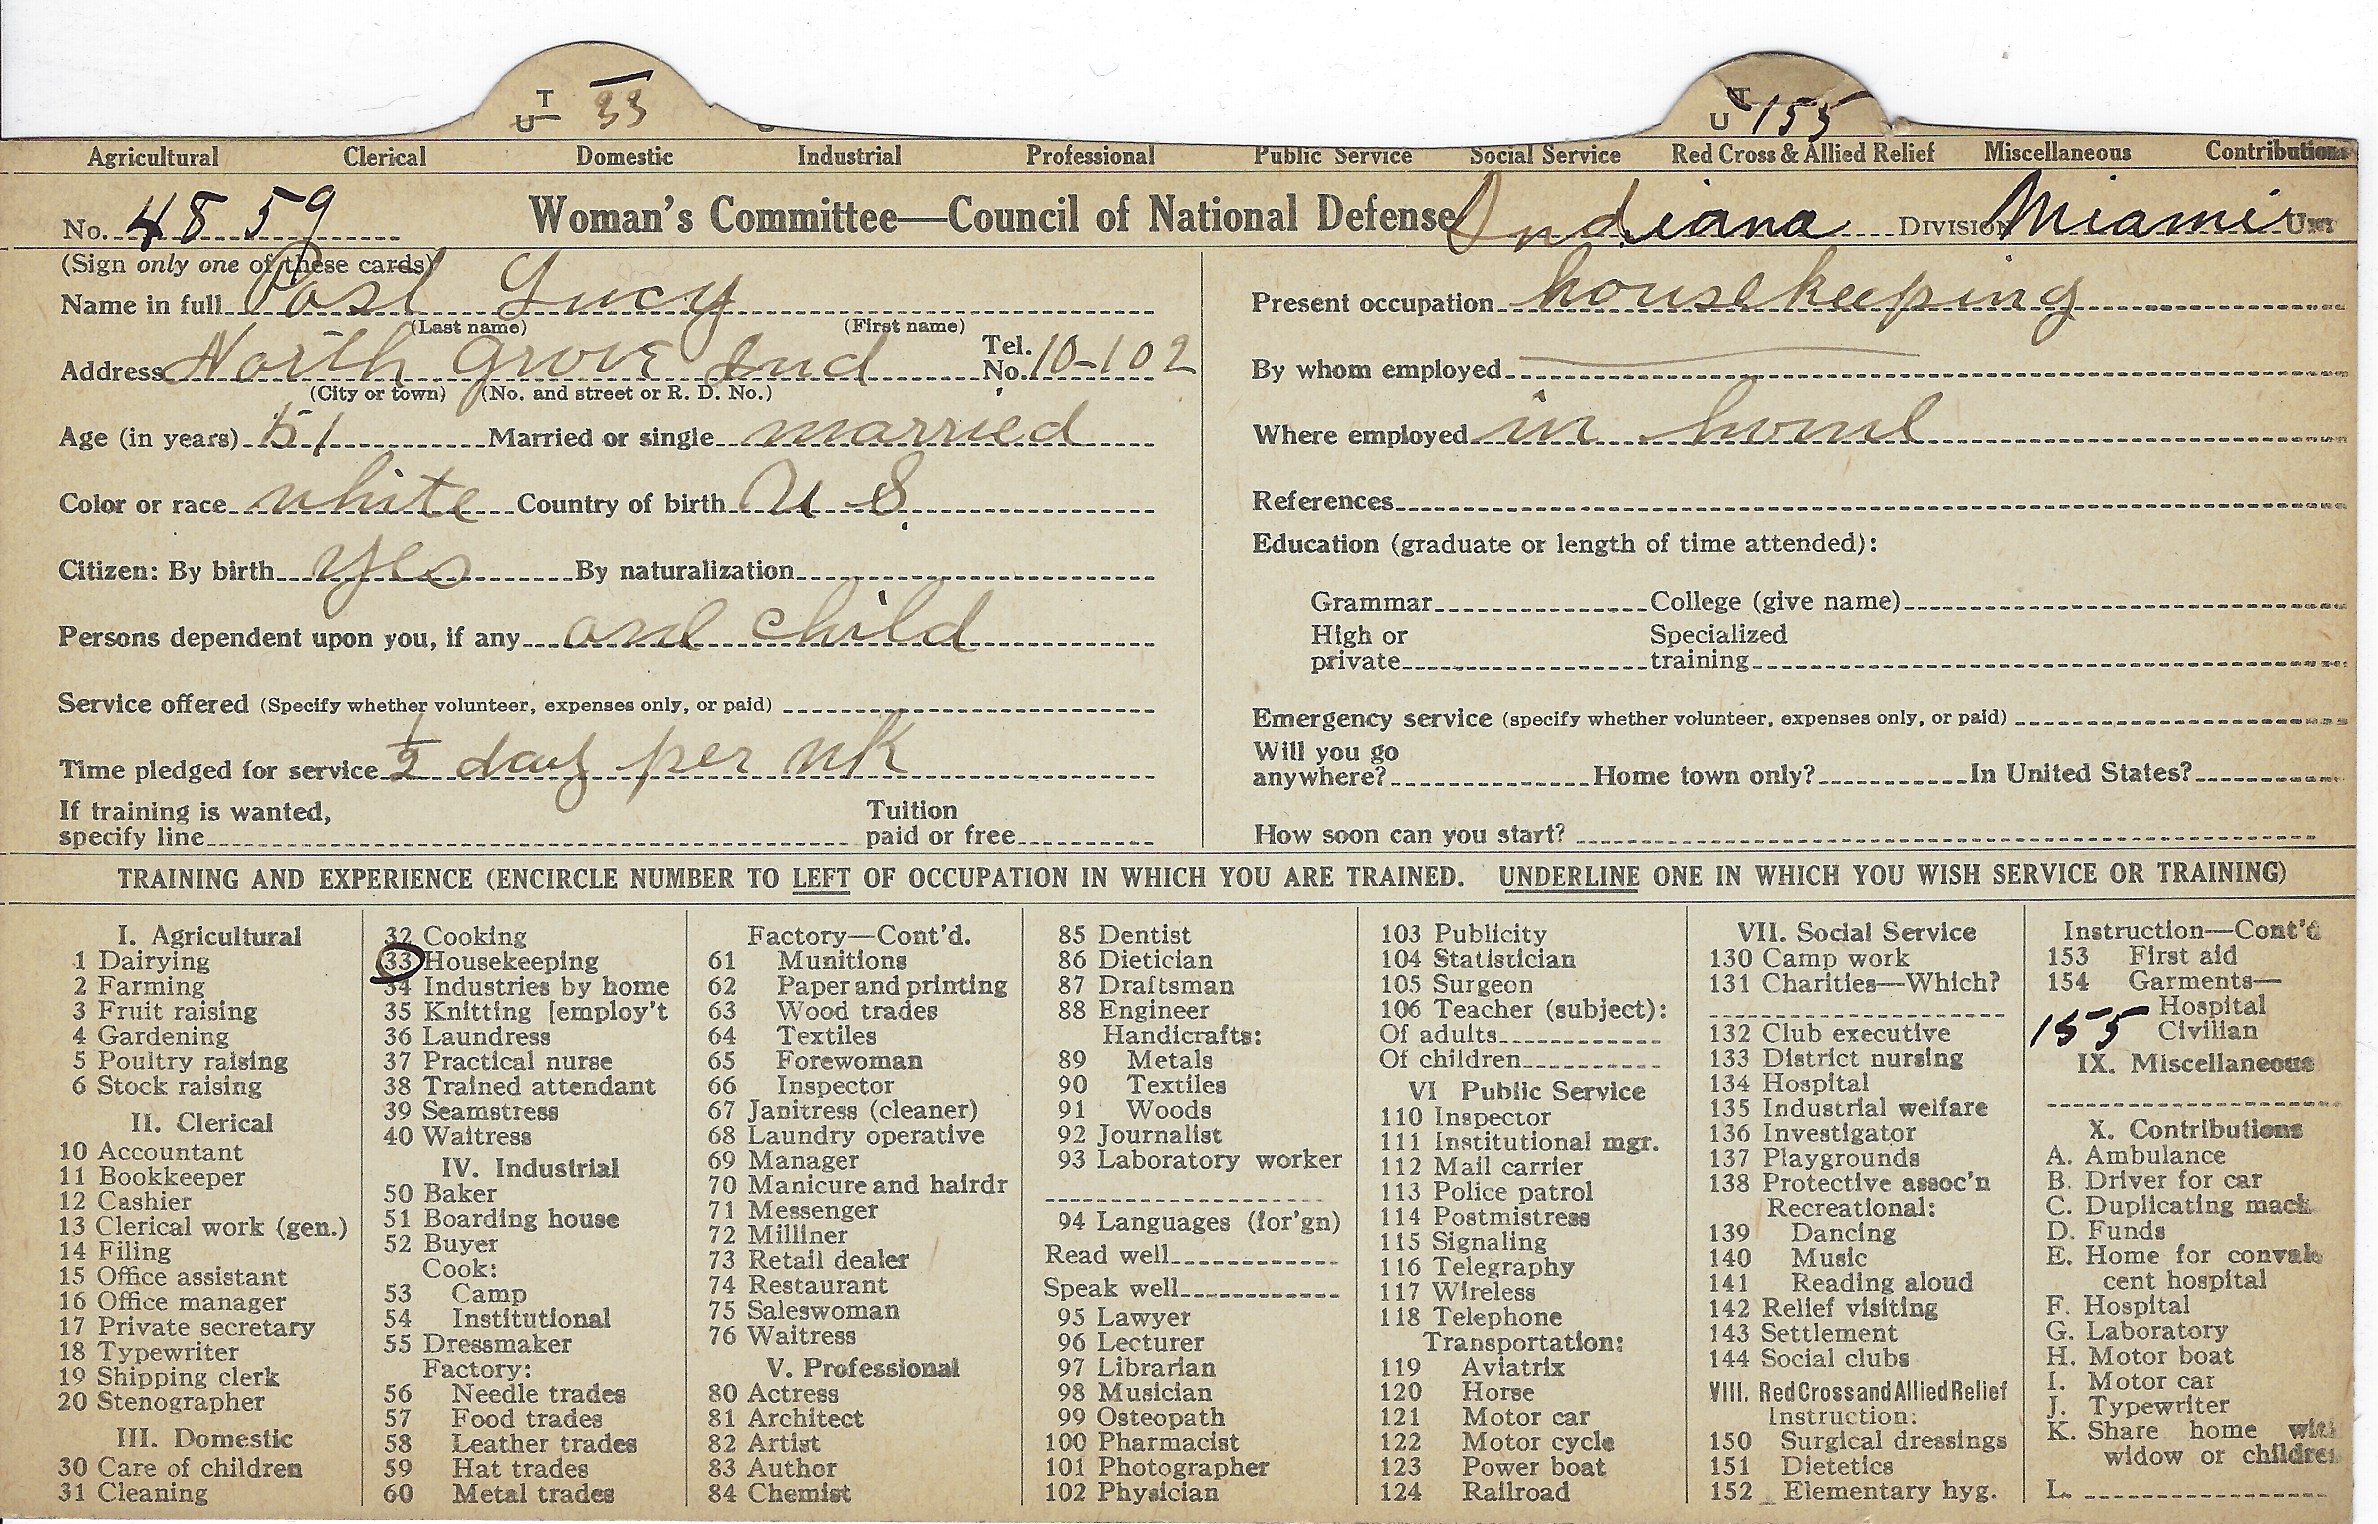 T 33
U
U 155
Agricultural Clerical Domestic Industrial Professional Public Service Social Service Red Cross & Allied Relief Miscellaneous Contributions
No. 4859 Woman's Committee—Council of National Defense Indiana Division Miami Unit
(Sign only one of these cards)
Name in full Post Lucy
(Last name) (First name)
Address North Grove Ind Tel. No. 10-102
(City or town) (No. and street or R. D. No.)
Age (in years) 51 Married or single married
Color or race white Country of birth U S.
Citizen: By birth yes By naturalization
Persons dependent upon you, if any one child
Service offered (Specify whether volunteer, expenses only, or paid)
Time pledged for service 1/2 day per wk
If training is wanted,
specify line Tuition paid or free
Present occupation housekeeping
By whom employed
Where employed in home
References
Education (graduate or length of time attended):
Grammar College (give name)
High or private Specialized training
Emergency service (specify whether volunteer, expenses only, or paid)
Will you go
anywhere? Home town only? In United States?
How soon can you start?
TRAINING AND EXPERIENCE (ENCIRCLE NUMBER TO LEFT OF OCCUPATION IN WHICH YOU ARE TRAINED. UNDERLINE ONE IN WHICH YOU WISH SERVICE OR TRAINING)
I. Agricultural
1 Dairying
2 Farming
3 Fruit raising
4 Gardening
5 Poultry raising
6 Stock raising
II. Clerical
10 Accountant
11 Bookkeeper
12 Cashier
13 Clerical work (gen.)
14 Filing
15 Office assistant
16 Office manager
17 Private secretary
18 Typewriter
19 Shipping clerk
20 Stenographer
III. Domestic
30 Care of children
31 Cleaning
32 Cooking
33 Housekeeping
34 Industries by home
35 Knitting [employ't
36 Laundress
37 Practical nurse
38 Trained attendant
39 Seamstress
40 Waitress
IV. Industrial
50 Baker
51 Boarding house
52 Buyer
Cook:
53 Camp
54 Institutional
55 Dressmaker
Factory:
56 Needle trades
57 Food trades
58 Leather trades
59 Hat trades
60 Metal trades
Factory—Cont'd.
61 Munitions
62 Paper and printing
63 Wood trades
64 Textiles
65 Forewoman
66 Inspector
67 Janitress (cleaner)
68 Laundry operative
69 Manager
70 Manicure and hairdr
71 Messenger
72 Milliner
73 Retail dealer
74 Restaurant
75 Saleswoman
76 Waitress
V. Professional
80 Actress
81 Architect
82 Artist
83 Author
84 Chemist
85 Dentist
86 Dietician
87 Draftsman
88 Engineer
Handicrafts:
89 Metals
90 Textiles
91 Woods
92 Journalist
93 Laboratory worker
94 Languages (for'gn)
Read well
Speak well
95 Lawyer
96 Lecturer
97 Librarian
98 Musician
99 Osteopath
100 Pharmacist
101 Photographer
102 Physician
103 Publicity
104 Statistician
105 Surgeon
106 Teacher (subject):
Of adults
Of children
VI Public Service
110 Inspector
111 Institutional mgr.
112 Mail carrier
113 Police patrol
114 Postmistress
115 Signaling
116 Telegraphy
117 Wireless
118 Telephone
Transportation:
119 Aviatrix
120 Horse
121 Motor car
122 Motor cycle
123 Power boat
124 Railroad
VII. Social Service
130 Camp work
131 Charities—Which?
132 Club executive
133 District nursing
134 Hospital
135 Industrial welfare
136 Investigator
137 Playgrounds
138 Protective assoc'n
Recreational:
139 Dancing
140 Music
141 Reading aloud
142 Relief visiting
143 Settlement
144 Social clubs
VIII. Red Cross and Allied Relief
Instruction:
150 Surgical dressings
151 Dietetics
152 Elementary hyg.
Instruction—Cont'd
153 First aid
154 Garments—
Hospital
155 Civilian
IX. Miscellaneous
X. Contributions
A. Ambulance
B. Driver for car
C. Duplicating mach
D. Funds
E. Home for convales
cent hospital
F. Hospital
G. Laboratory
H. Motor boat
I. Motor car
J. Typewriter
K. Share home with
widow or children
L.